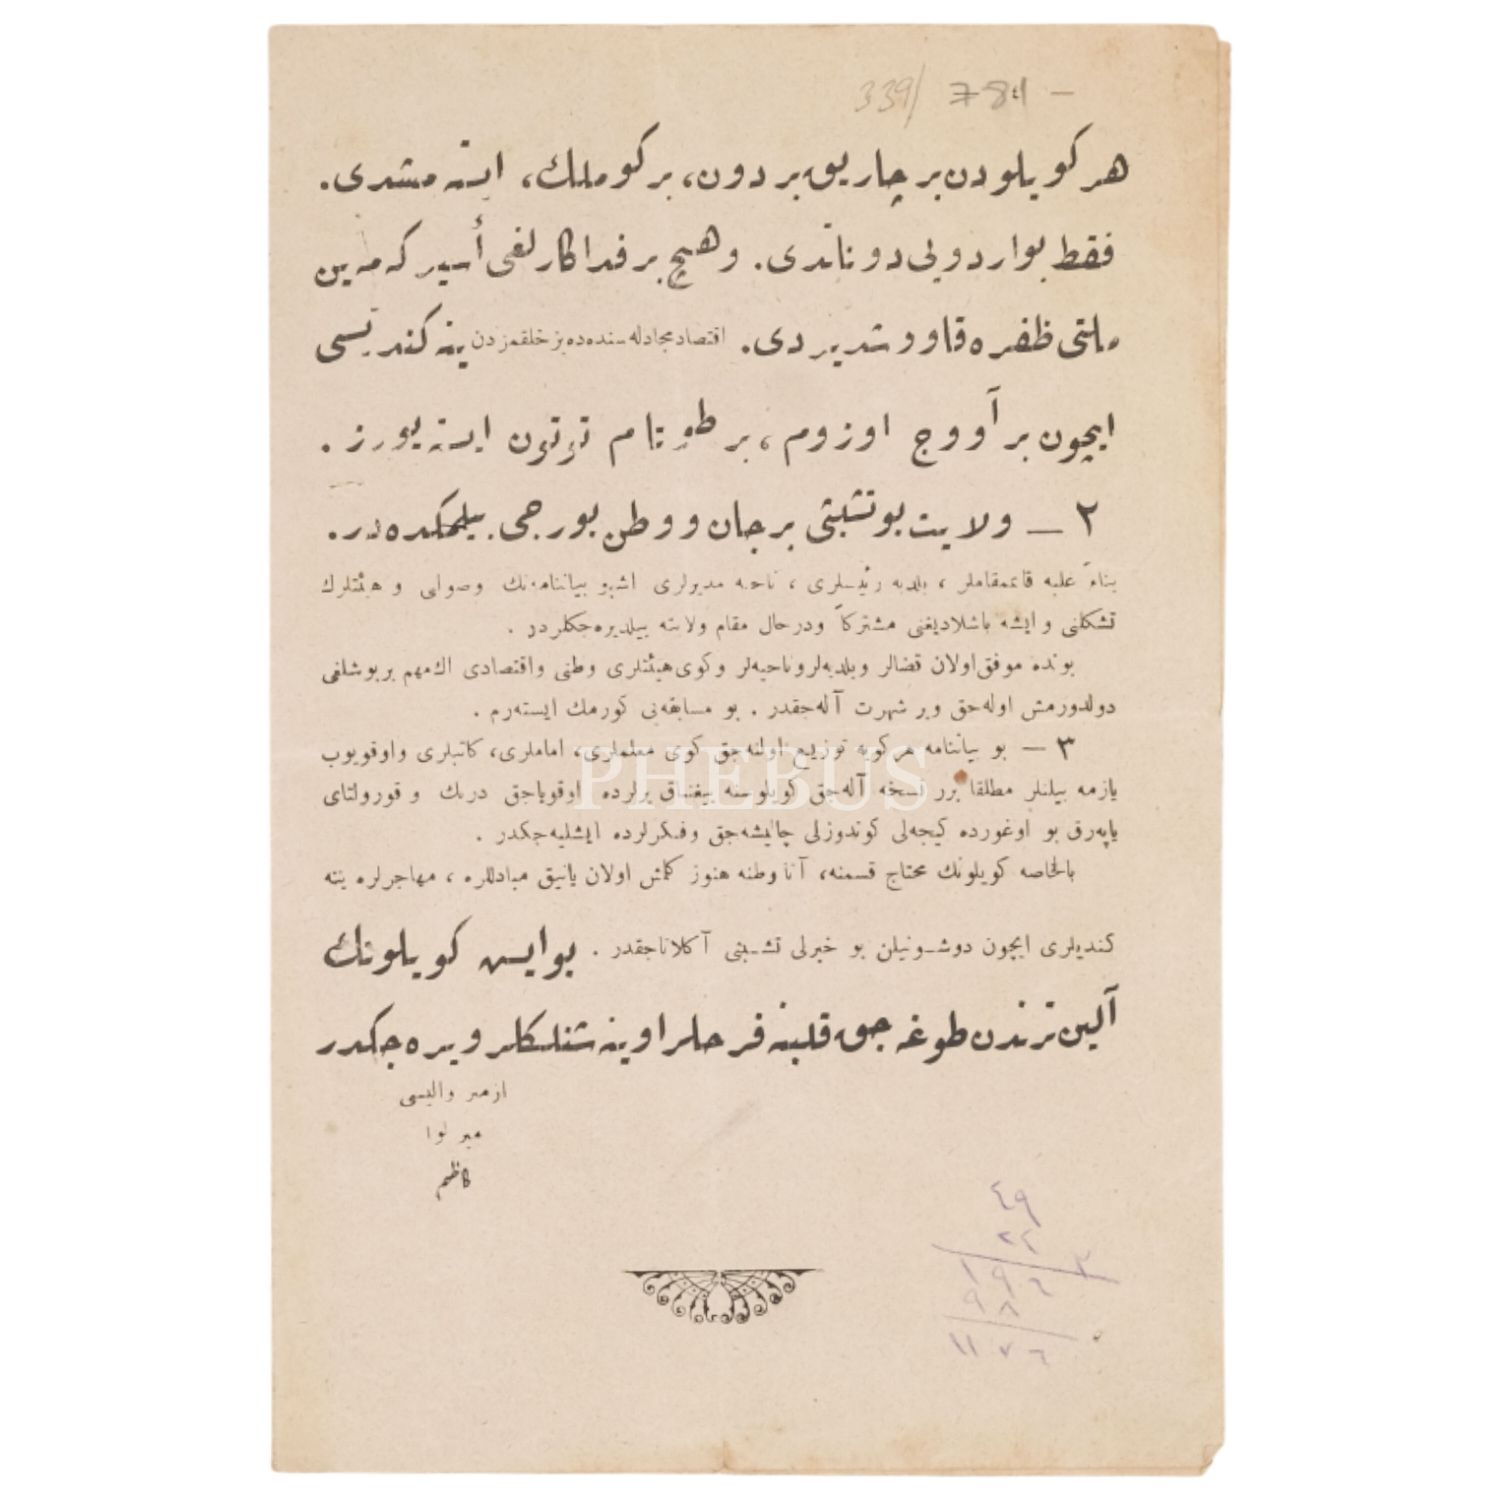 339/ 784 —
هر كويلودن بر چاريق بر دون، بر كوملك، ايسته مشدى.
فقط بو اردويى دوناتدى. و هيچ بر فداكارلغى أسيركه مه ين
ملتى ظفره قاووشديردى. اقتصاد مجادله سنده ده بز خلقمزدن ينه كنديسى
ايچون بر آووج اوزوم، بر طوتام توتون ايسته يورز.
٢ — ولايت بو تشبثى بر جان و وطن بورجى بيلمكده در.
بناءً عليه قائممقاملر، بلديه رئيسلرى، ناحيه مديرلرى اشبو بياننامه نك وصولى و هيئتلرك
تشكلنى و ايشه باشلاديغنى مشتركاً و درحال مقام ولايته بيلديره جكلردر.
بونده موفق اولان قضالر و بلديه لر و ناحيه لر و كوى هيئتلرى وطنى و اقتصادى اك مهم بر بوشلغى
دولدورمش اوله جق و بر شهرت آله جقدر. بو مسابقه يى كورمك ايسته رم.
٣ — بو بياننامه هر كويه توزيع اولنه جق كوى معلملرى، اماملرى، كاتبلرى و اوقويوب
يازمه بيلنلر مطلقا برر نسخه آله جق كويلوسنه ييغناق يرلرده اوقوياجق درنك و قورولتاى
ياپه رق بو اوغورده كيجه لى كوندوزلى چاليشه جق و فكرلرده ايشليه جكدر.
بالخاصه كويلونك محتاج قسمنه، آنا وطنه هنوز كلمش اولان يانيق مبادللره، مهاجرلره ينه
كنديلرى ايچون دوشونيلن بو خيرلى تشبثى آكلاتاجقدر. بو ايسه كويلونك
آلين ترندن طوغه جق قلبنه فرحلر اوينه شنلكلر ويره جكدر
ازمير واليسى
مير لوا
كاظم
٤٩
٢٤
١٩٦
٩٨
١١٧٦
PHEBUS